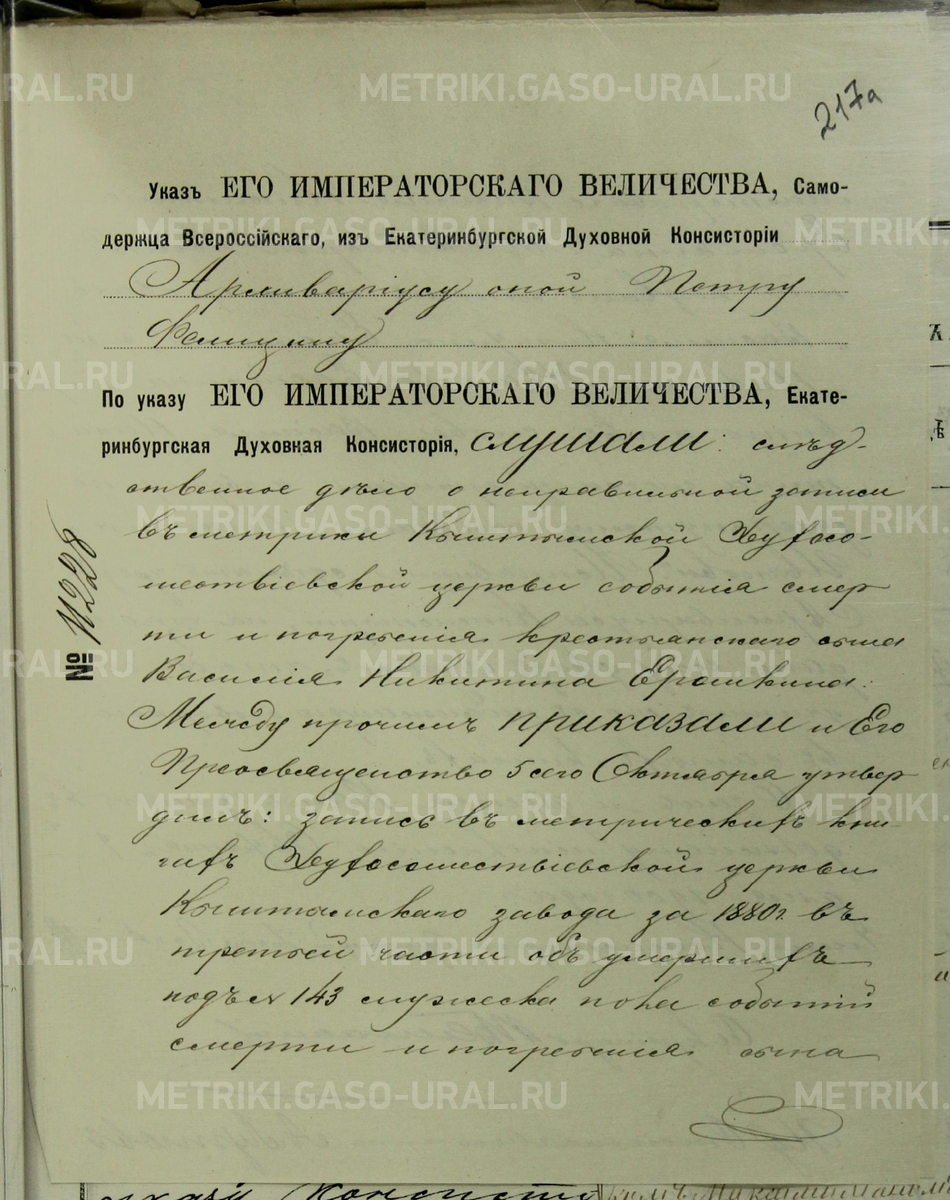 217а
Указъ ЕГО ИМПЕРАТОРСКАГО ВЕЛИЧЕСТВА, Само-
держца Всероссійскаго, изъ Екатеринбургской Духовной Консисторіи
Архиваріусу оной Петру
По указу ЕГО ИМПЕРАТОРСКАГО ВЕЛИЧЕСТВА, Екате-
ринбургская Духовная Консисторія, слушали: слѣд-
ственное дѣло о неправильной записи
въ метрики Кыштымской Духосо-
шествіевской церкви событія смер
ти и погребенія крестьянскаго сына
Василія Никитина Ерошкина:
Между прочимъ приказали и Его
Преосвященство 5 сего Октября утвер
дилъ: запись въ метрическихъ кни-
гахъ Духосошествіевской церкви
Кыштымскаго завода за 1880 г. въ
третьей части объ умершихъ
подъ № 143 мужеска пола событій
смерти и погребенія сына
№ 11228
METRIKI.GASO-URAL.RU